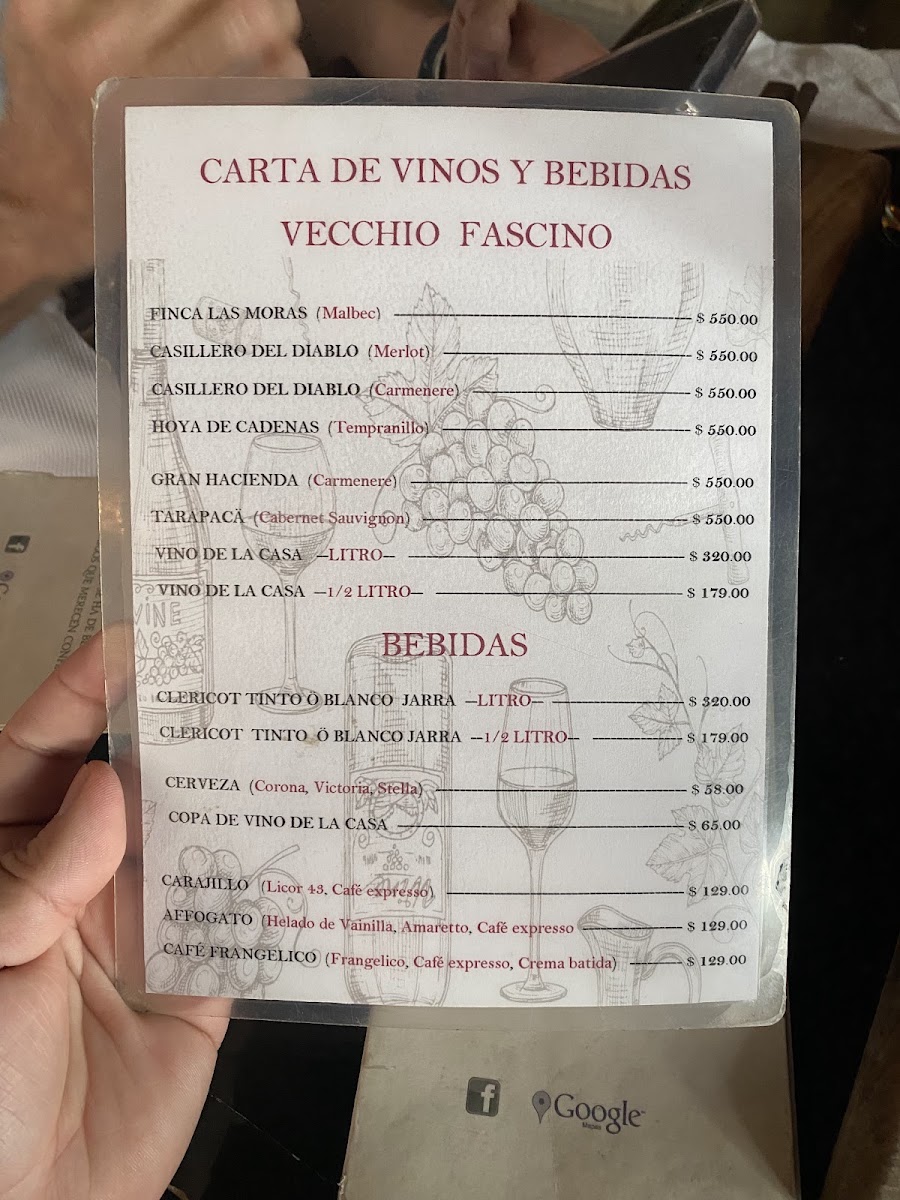 CARTA DE VINOS Y BEBIDAS
VECCHIO FASCINO
FINCA LAS MORAS (Malbec) $ 550.00
CASILLERO DEL DIABLO (Merlot) $ 550.00
CASILLERO DEL DIABLO (Carmenere) $ 550.00
HOYA DE CADENAS (Tempranillo) $ 550.00
GRAN HACIENDA (Carmenere) $ 550.00
TARAPACĂ (Cabernet Sauvignon) $ 550.00
VINO DE LA CASA —LITRO— $ 320.00
VINO DE LA CASA —1/2 LITRO— $ 179.00
BEBIDAS
CLERICOT TINTO Ö BLANCO JARRA —LITRO— $ 320.00
CLERICOT TINTO Ö BLANCO JARRA —1/2 LITRO— $ 179.00
CERVEZA (Corona, Victoria, Stella) $ 58.00
COPA DE VINO DE LA CASA $ 65.00
CARAJILLO (Licor 43, Café expresso) $ 129.00
AFFOGATO (Helado de Vainilla, Amaretto, Café expresso $ 129.00
CAFÉ FRANGELICO (Frangelico, Café expresso, Crema batida) $ 129.00
VINE
QUE MERECEN
HA DE
f
Google
Maps